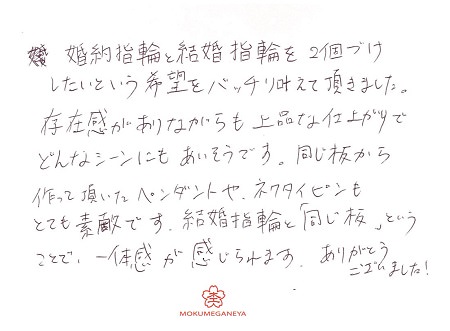 婚約指輪と結婚指輪を2個づけ
したいという希望をバッチリ叶えて頂きました。
存在感がありながらも上品な仕上がりで
どんなシーンにもあいそうです。同じ板から
作って頂いたペンダントや、ネクタイピンも
とても素敵です。結婚指輪と「同じ板」という
ことで、一体感が感じられます。ありがとう
ございました!
MOKUMEGANEYA